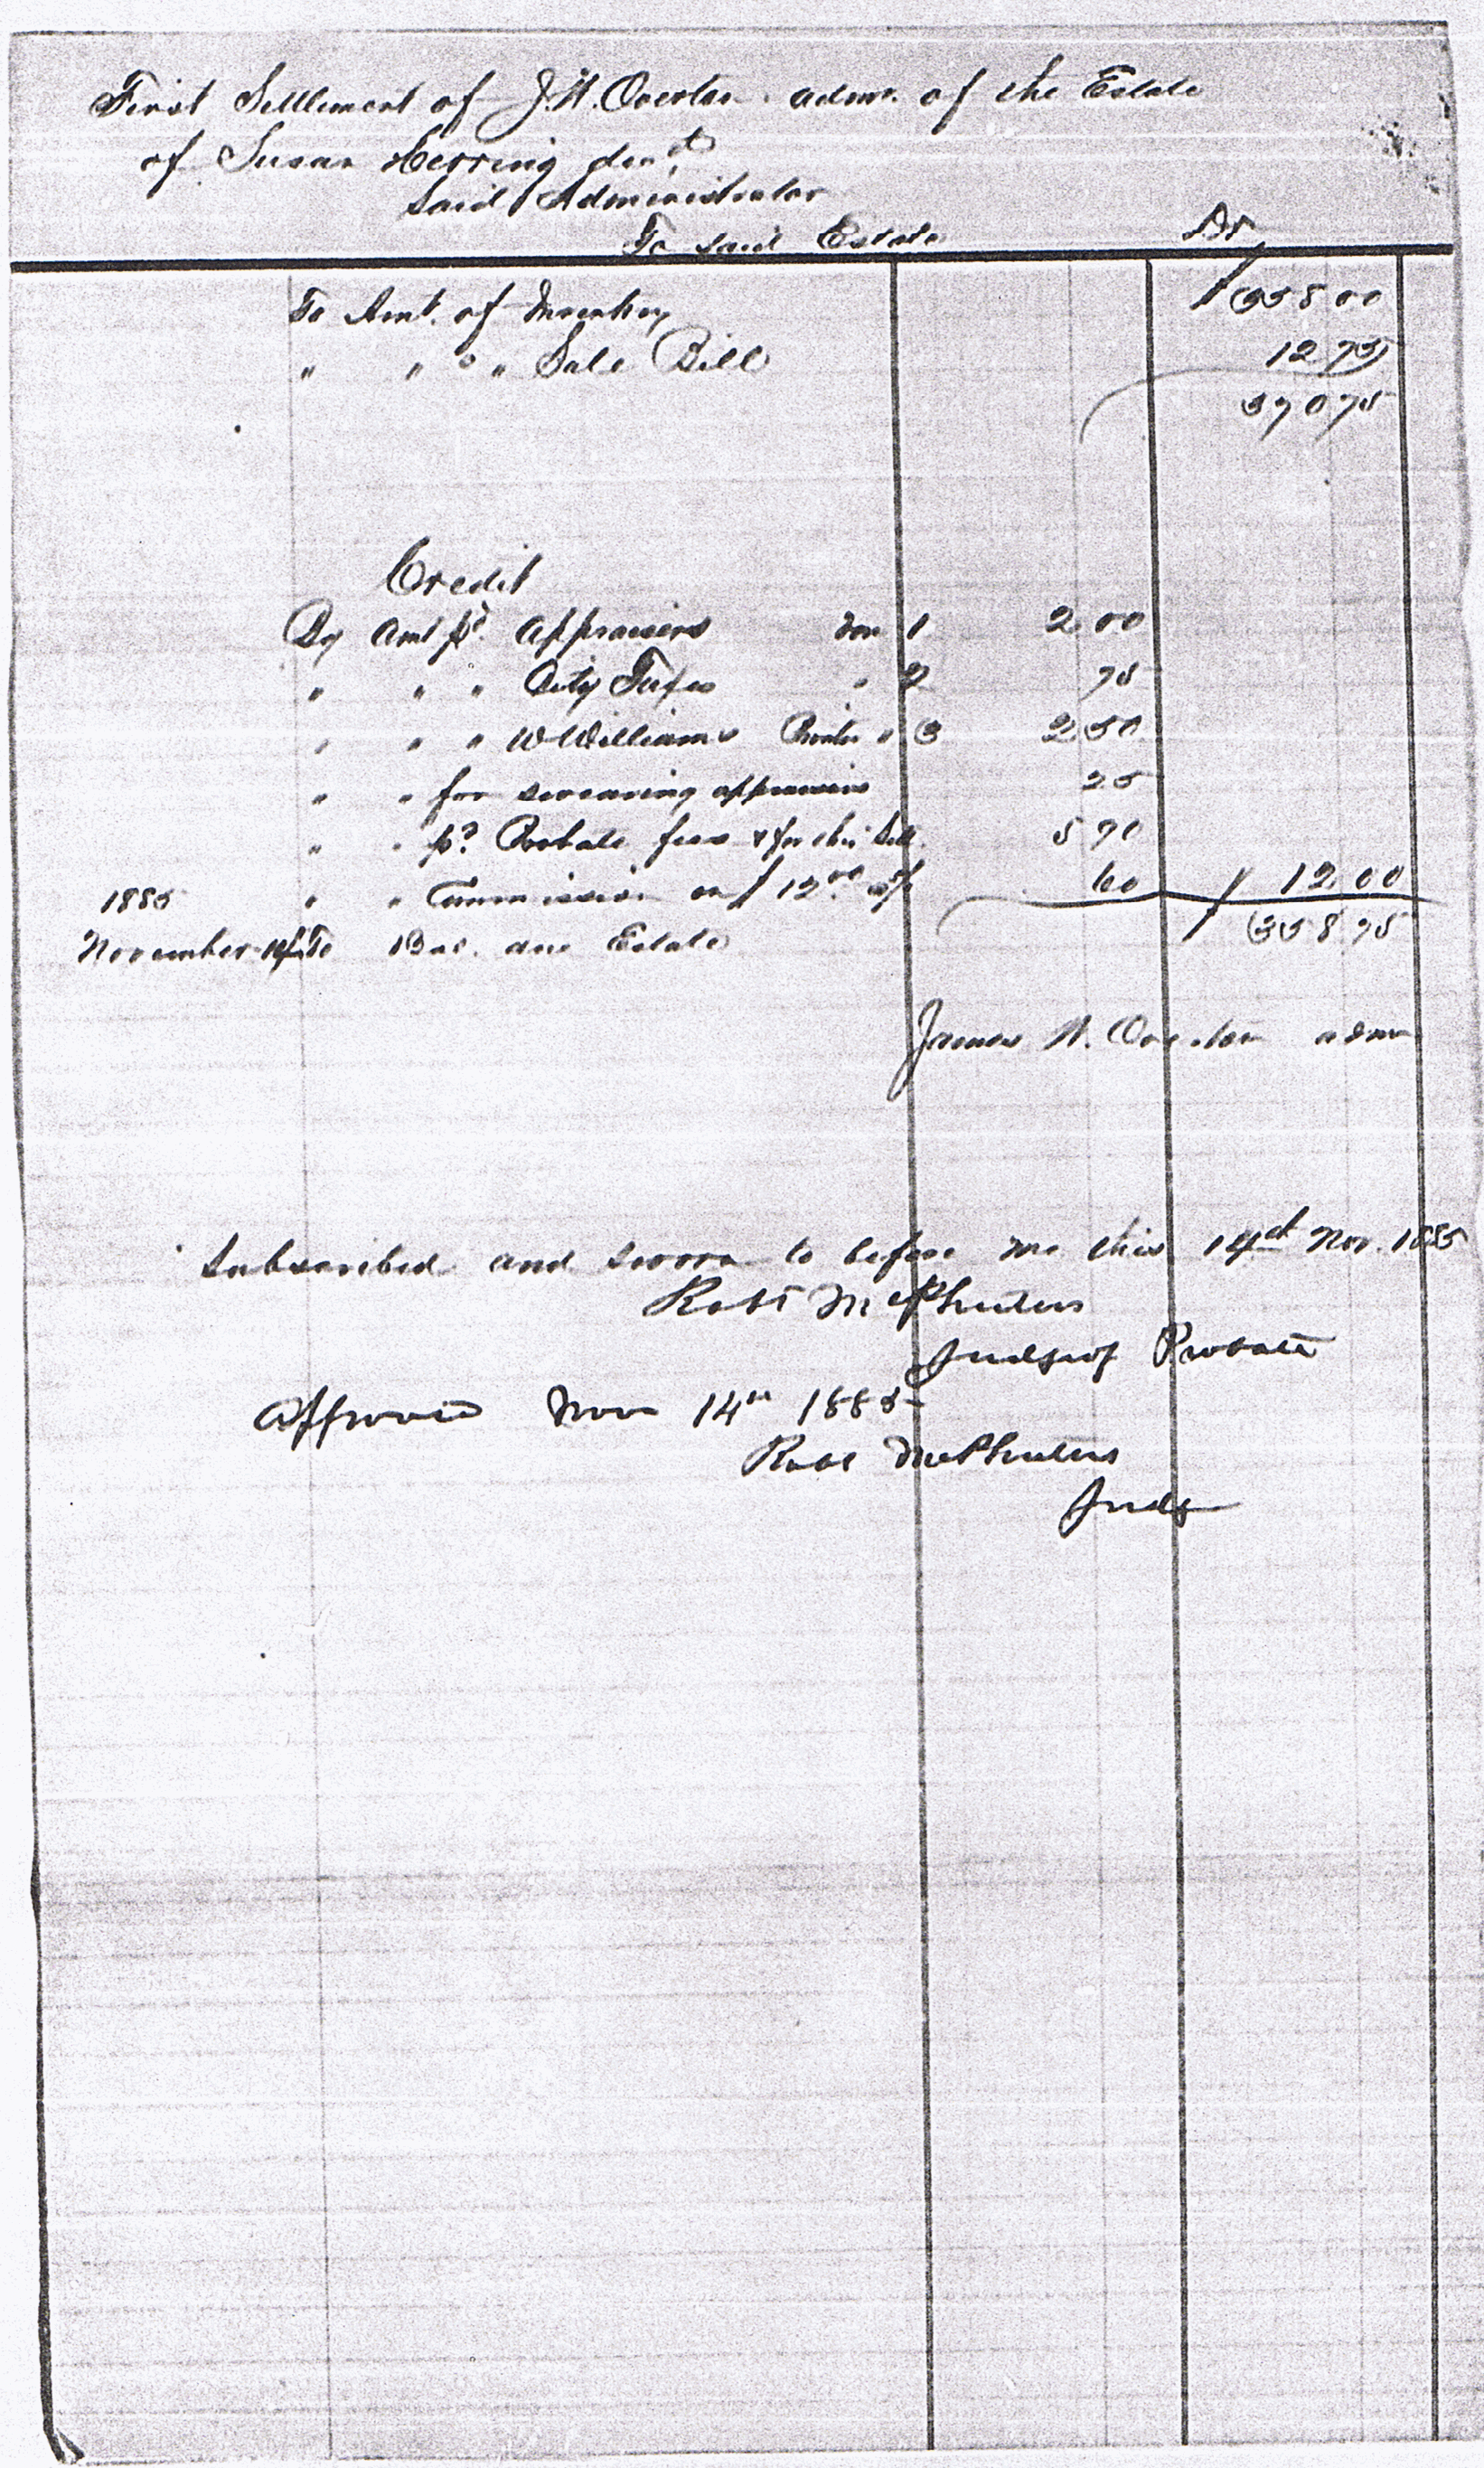 First Settlement of J. H. Overton admr. of the Estate
of Susan Herring decd
Said Administrator
To said Estate Dr
To Amt. of Inventory $ 358 00
" " " " Sale Bill 12 75
370 75
Credit
By Amt pd. Appraisers Vou 1 200
" " " City Taxes " 2 75
" " " W Williams Printer " 3 250
" " for swearing appraisers 25
" " pd. Probate fees & for this Sett. 5 90
1885 " " Commission on $ 12 00 60 $ 12 00
November 14 To Bal. due Estate $ 358 75
James H. Overton admr
Subscribed and sworn to before me this 14th Nov. 1885
Robt McPheeters
Judge of Probate
Approved Nov 14th 1885
Robt McPheeters
Judge